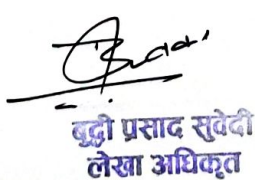 बुद्धी प्रसाद सुवेदी
लेखा अधिकृत